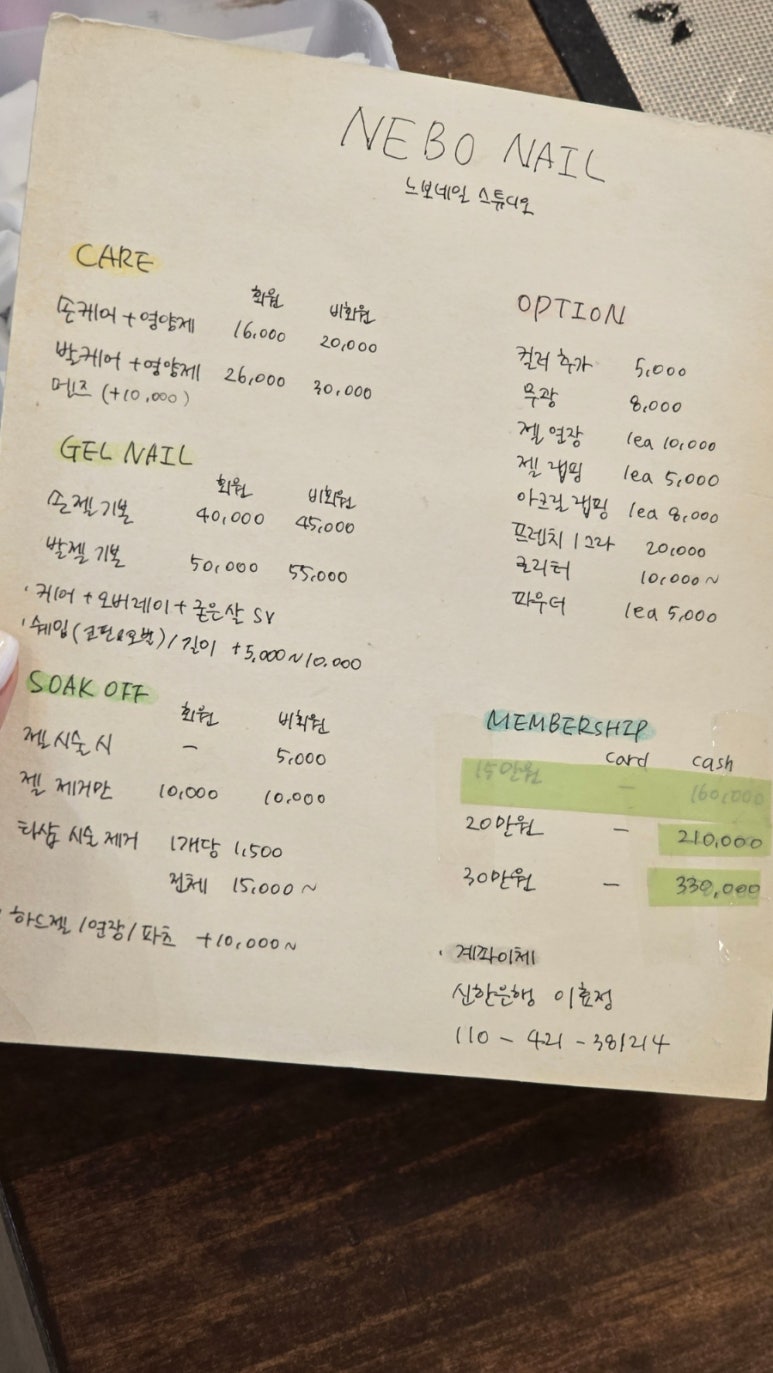 NEBO NAIL
느보네일 스튜디오
CARE
회원 비회원
손케어 + 영양제 16,000 20,000
발케어 + 영양제 26,000 30,000
멘즈 (+10,000)
GEL NAIL
회원 비회원
손젤 기본 40,000 45,000
발젤 기본 50,000 55,000
· 케어 + 오버레이 + 굳은살 SV
· 쉐입 (코핀&오벌) / 길이 +5,000~10,000
SOAK OFF
회원 비회원
젤 시술 시 - 5,000
젤 제거만 10,000 10,000
타샵 시술 제거 1개당 1,500
전체 15,000~
· 하드젤 / 연장 / 파츠 +10,000~
OPTION
컬러 추가 5,000
무광 8,000
젤 연장 1ea 10,000
젤 랩핑 1ea 5,000
아크릴 랩핑 1ea 8,000
프렌치 | 그라 20,000
글리터 10,000~
파우더 1ea 5,000
MEMBERSHIP
card cash
15만원 - 160,000
20만원 - 210,000
30만원 - 330,000
· 계좌이체
신한은행 이효정
110 - 421 - 381214